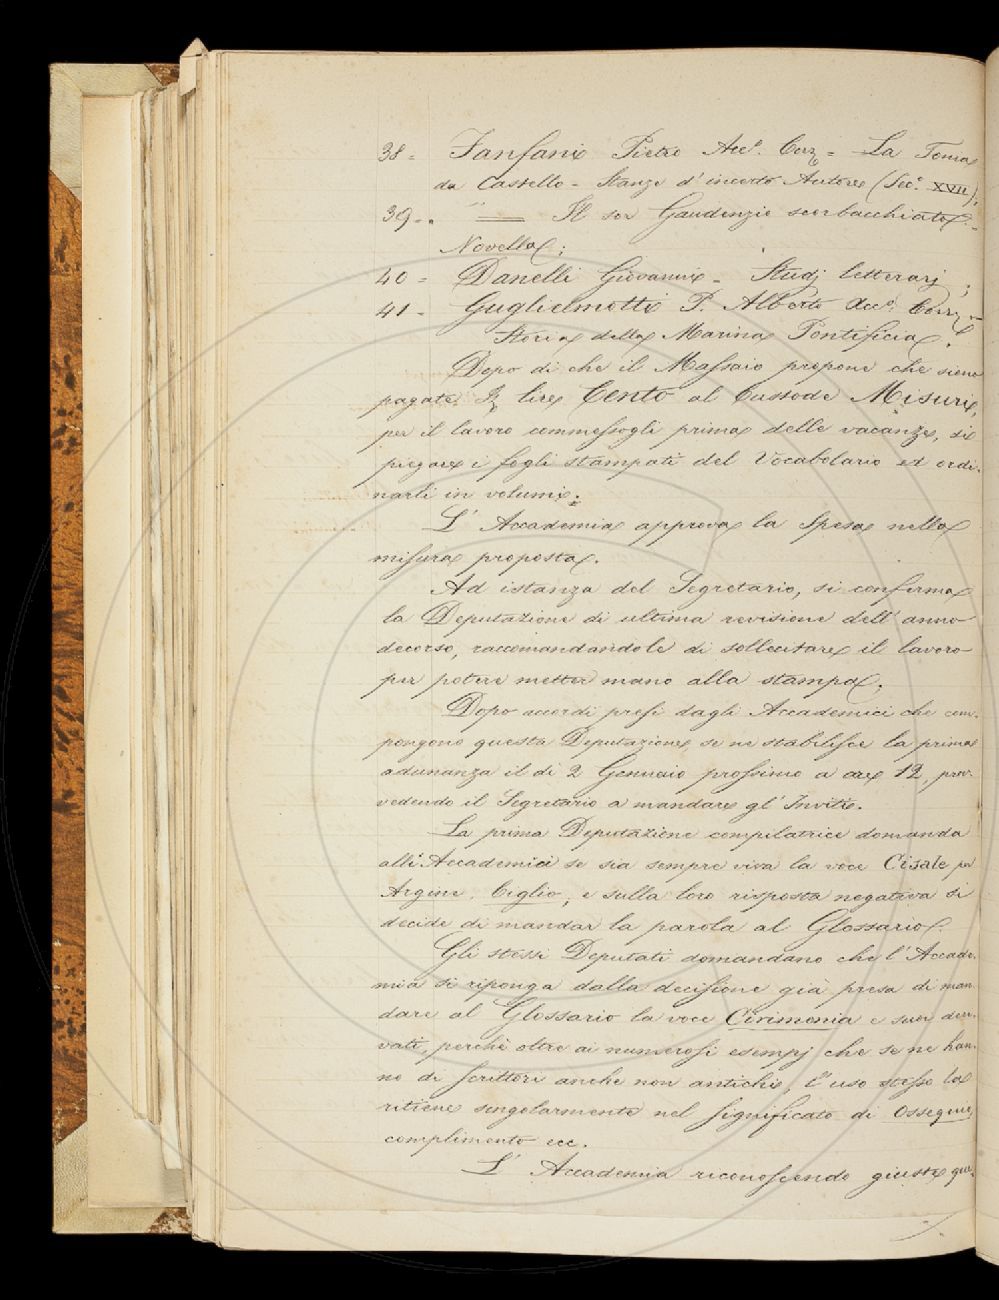 38 = Fanfani Pietro Acc.º Corr. = La Toma
da Castello = Stanze d'incerto Autore (Sec.º XVII);
39 = . " == Il ser Gaudenzio scorbacchiato =
Novella;
40 = Danelli Giovanni = Studj letterarj;
41 = Guglielmotti P. Alberto Acc.º Corr. =
Storia della Marina Pontificia.
Dopo di che il Massaio propone che sieno
pagate lire Cento al Custode Misuri,
per il lavoro commessogli prima delle vacanze, di
piegare i fogli stampati del Vocabolario ed ordi-
narli in volumi.
L'Accademia approva la spesa nella
misura proposta.
Ad istanza del Segretario, si conferma
la Deputazione di ultima revisione dell'anno
decorso, raccomandandole di sollecitare il lavoro
per potere metter mano alla stampa.
Dopo accordi presi dagli Accademici che com-
pongono questa Deputazione se ne stabilisce la prima
adunanza il dì 2 Gennaio prossimo a ore 12, prov-
vedendo il Segretario a mandare gl'Inviti.
La prima Deputazione compilatrice domanda
alli Accademici se sia sempre viva la voce Cisale per
Argine, Ciglio; e sulla loro risposta negativa si
decide di mandar la parola al Glossario.
Gli stessi Deputati domandano che l'Accade-
mia si riponga dalla decisione già presa di man-
dare al Glossario la voce Cirimonia e suoi deri-
vati, perchè oltre ai numerosi esempj che se ne han-
no di Scrittori anche non antichi, l'uso stesso la
ritiene singolarmente nel significato di Ossequio,
complimento ecc.
L'Accademia riconoscendo giuste que-